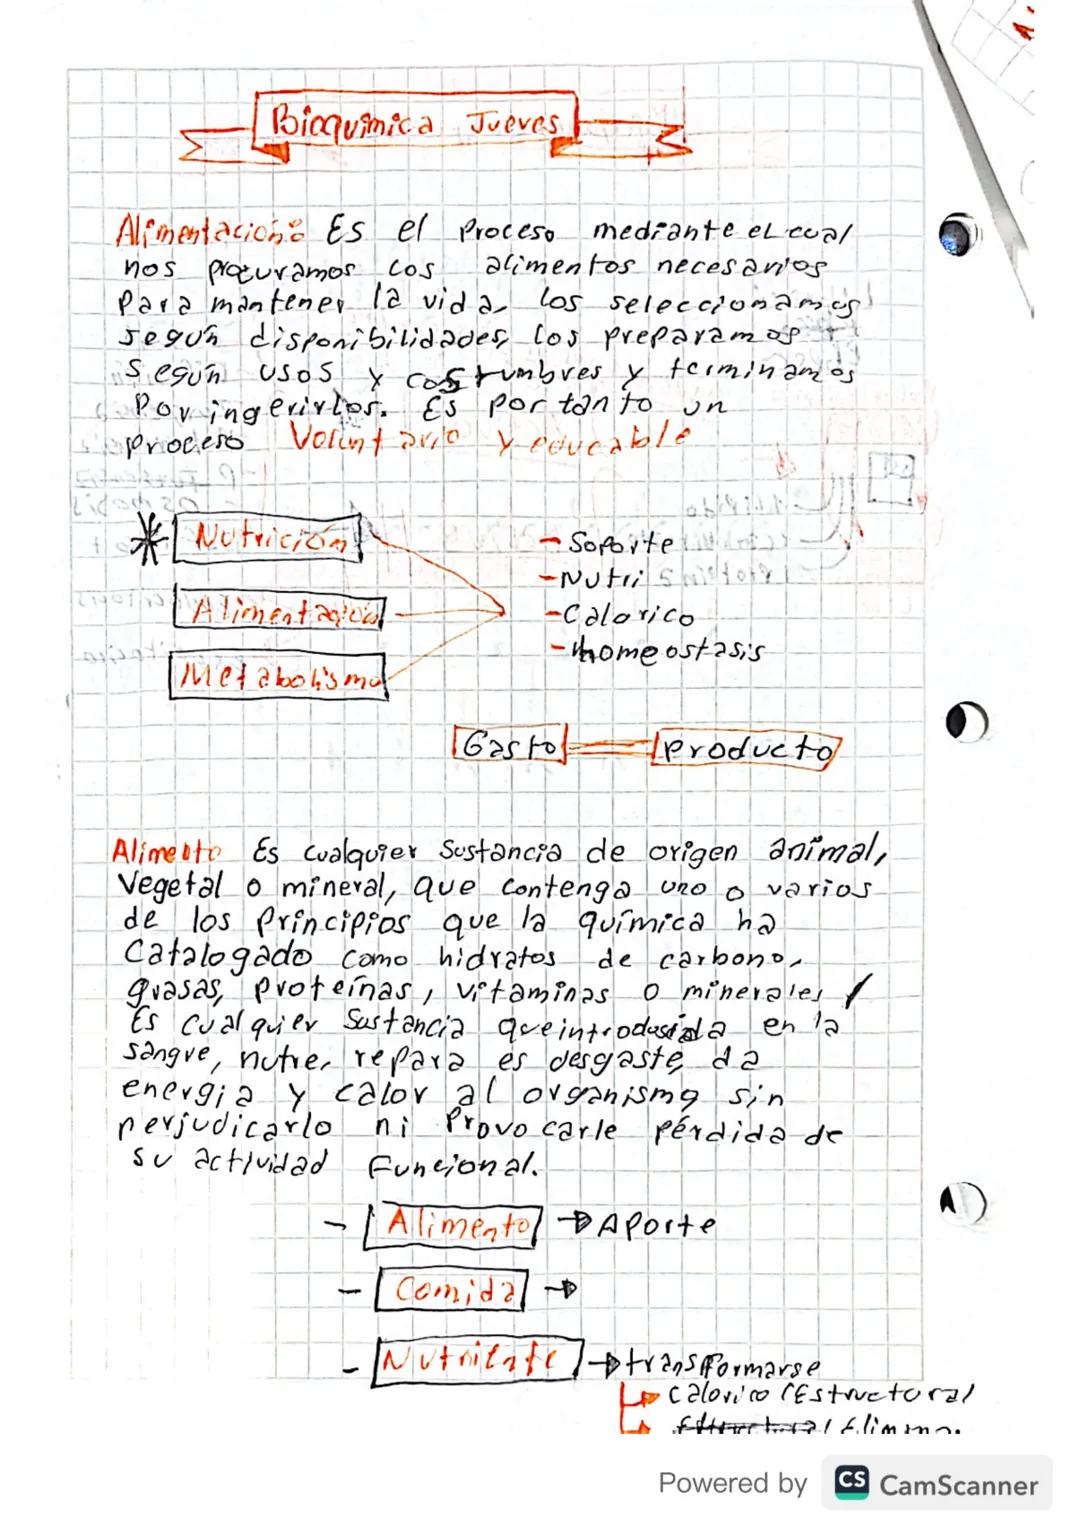 Bioquimica Jueves
Alimentacion: Es el Proceso mediante el cual
nos procuramos los alimentos necesarios
Para mantener la vida, los seleccionamos
segun disponibilidades, los preparamos
segun usos y costumbres y terminamos
Por ingerirlos. Es por tanto un
proceso Voluntario y educable
Nutrición
Alimentación
Metabolismo
- Soporte
- Nutri
- Calorico
- homeostasis
Gasto
producto
Alimento Es cualquier Sustancia de origen animal,
Vegetal o mineral, que contenga uno o varios
de los Principios que la química ha
Catalogado como hidratos de carbono,
grasas, Proteínas, vitaminas o minerales /
Es cualquier Sustancia que introducida en la
sangre, nutre, repara es desgaste, da
energia y calor al organismo sin
perjudicarlo ni Provocarle pérdida de
su actividad Funcional.
- Alimento → Aporte
- Comida →
- Nutriente → transformarse
calorico (Estructural
Powered by CS CamScanner